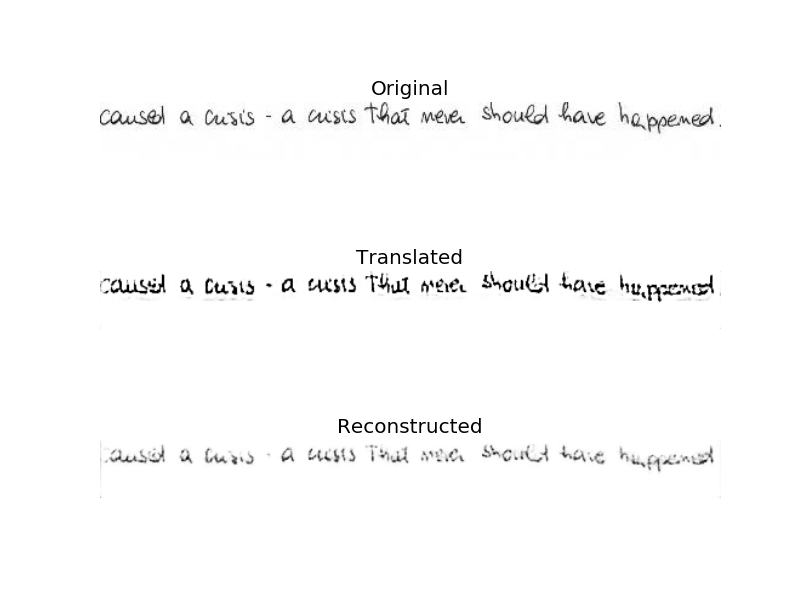 Original
caused a crisis - a crisis that never should have happened.
Translated
caused a crisis - a crisis That never should have happened.
Reconstructed
caused a crisis - a crisis That never should have happened